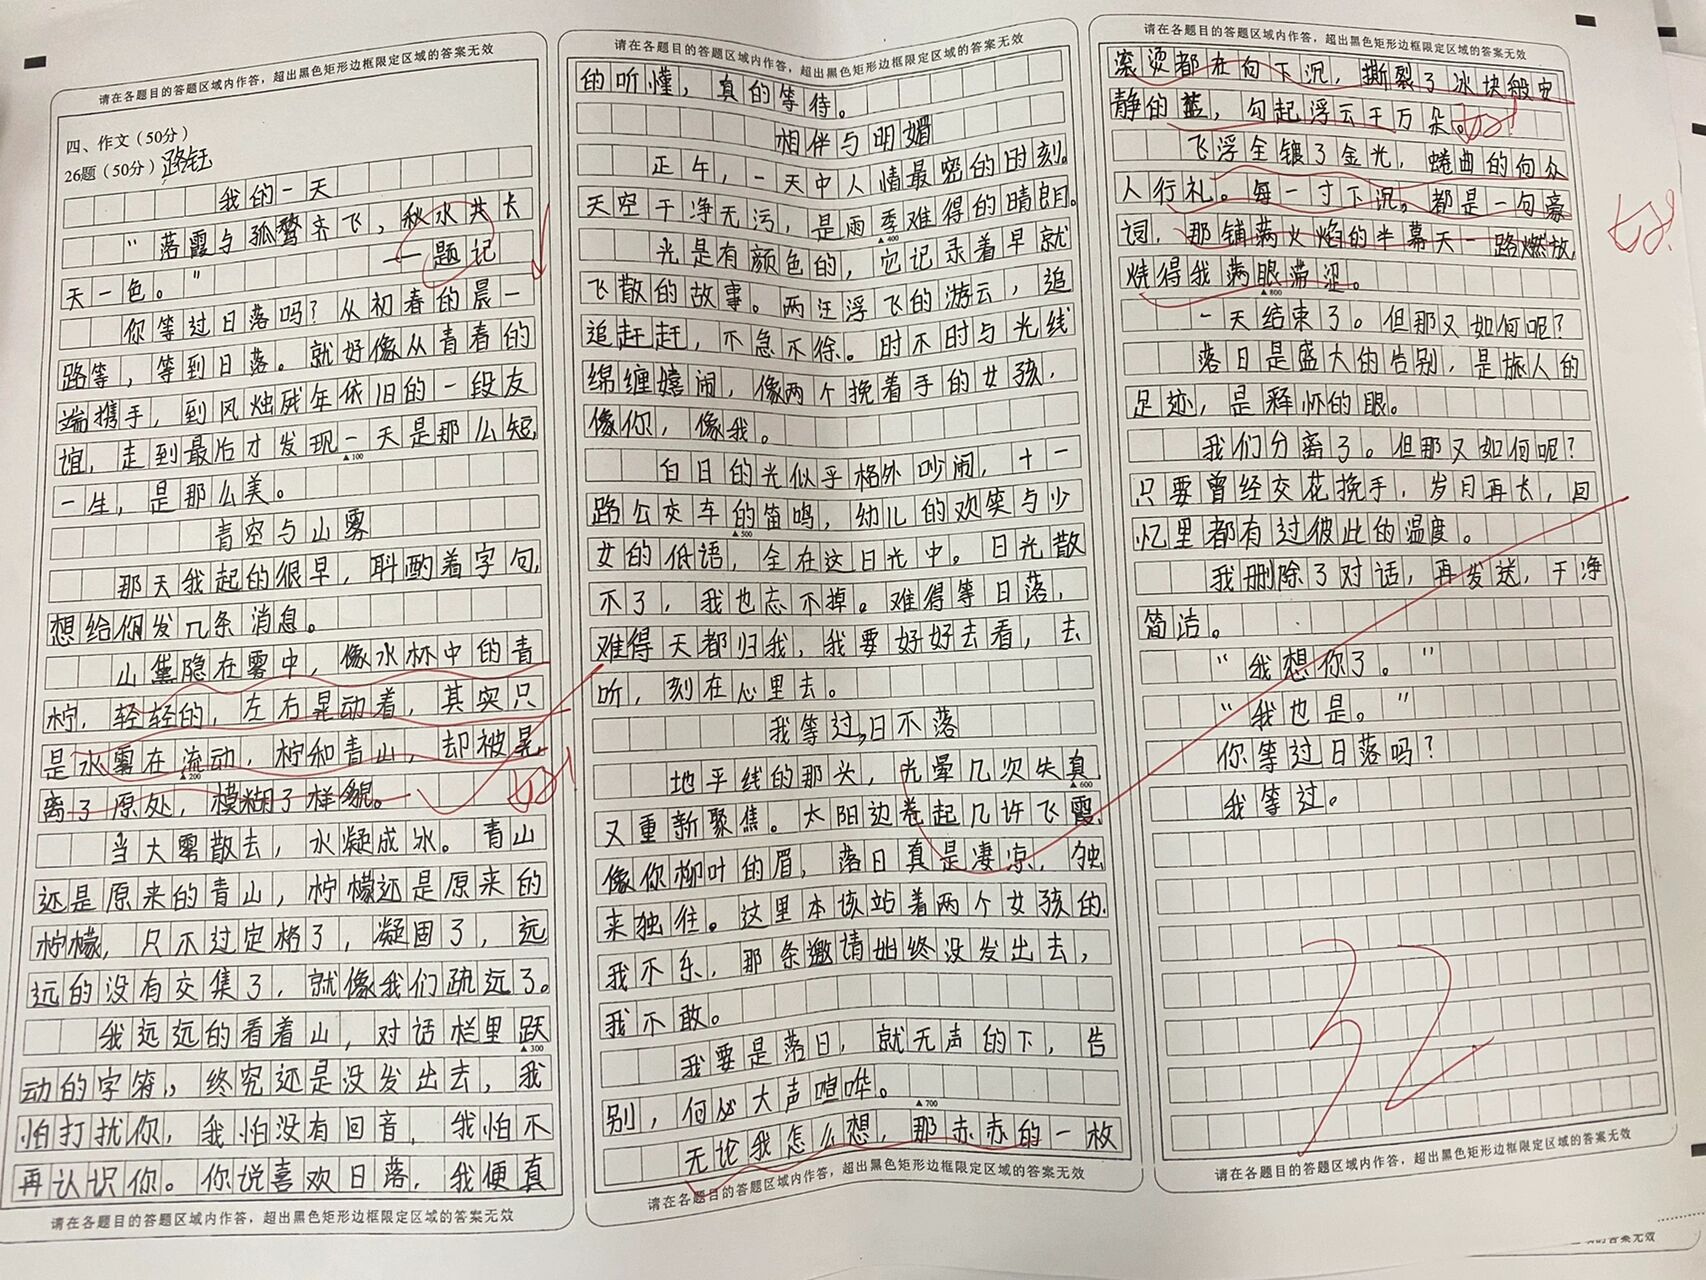 请在各题目的答题区域内作答，超出黑色矩形边框限定区域的答案无效
四、作文（50分）
26题（50分）路钰
我的一天
“落霞与孤鹜齐飞，秋水共长
天一色。” ——题记
你等过日落吗？从初春的晨一
路等，等到日落。就好像从青春的
端携手，到风烛残年依旧的一段友
谊，走到最后才发现一天是那么短，
▲100
一生，是那么美。
青空与山雾
那天我起的很早，斟酌着字句，
想给你发几条消息。
山黛隐在雾中，像水杯中的青
柠，轻轻的，左右晃动着，其实只
是水雾在流动，柠和青山，却被晃
▲200
离了原处，模糊了样貌。
当大雾散去，水凝成冰。青山
还是原来的青山，柠檬还是原来的
柠檬，只不过定格了，凝固了，远
远的没有交集了，就像我们疏远了。
我远远的看着山，对话栏里跃
▲300
动的字符，终究还是没发出去，我
怕打扰你，我怕没有回音，我怕不
再认识你。你说喜欢日落，我便真
请在各题目的答题区域内作答，超出黑色矩形边框限定区域的答案无效
请在各题目的答题区域内作答，超出黑色矩形边框限定区域的答案无效
的听懂，真的等待。
相伴与明媚
正午，一天中人情最密的时刻。
天空干净无污，是雨季难得的晴朗。
▲400
光是有颜色的，它记录着早就
飞散的故事。两汪浮飞的游云，追
追赶赶，不急不徐。时不时与光线
绵缠嬉闹，像两个挽着手的女孩，
像你，像我。
白日的光似乎格外吵闹，十一
路公交车的笛鸣，幼儿的欢笑与少
▲500
女的低语，全在这日光中。日光散
不了，我也忘不掉。难得等日落，
难得天都归我，我要好好去看，去
听，刻在心里去。
我等过，日不落
地平线的那头，光晕几次失真
▲600
又重新聚焦。太阳边卷起几许飞霞，
像你柳叶的眉，落日真是凄凉，独
来独往。这里本该站着两个女孩的，
我不乐，那条邀请始终没发出去，
我不敢。
我要是落日，就无声的下，告
别，何必大声喧哗。
▲700
无论我怎么想，那赤赤的一枚
请在各题目的答题区域内作答，超出黑色矩形边框限定区域的答案无效
请在各题目的答题区域内作答，超出黑色矩形边框限定区域的答案无效
滚烫都在向下沉，撕裂了冰块般安
静的蓝，勾起浮云千万朵。
飞浮全镀了金光，蜷曲的向众
人行礼。每一寸下沉，都是一句豪
词，那铺满火焰的半幕天一路燃放，
烧得我满眼滞涩。
▲800
一天结束了。但那又如何呢？
落日是盛大的告别，是旅人的
足迹，是释怀的眼。
我们分离了。但那又如何呢？
只要曾经交花挽手，岁月再长，回
忆里都有过彼此的温度。
我删除了对话，再发送，干净
简洁。
“我想你了。”
“我也是。”
你等过日落吗？
我等过。
32
请在各题目的答题区域内作答，超出黑色矩形边框限定区域的答案无效